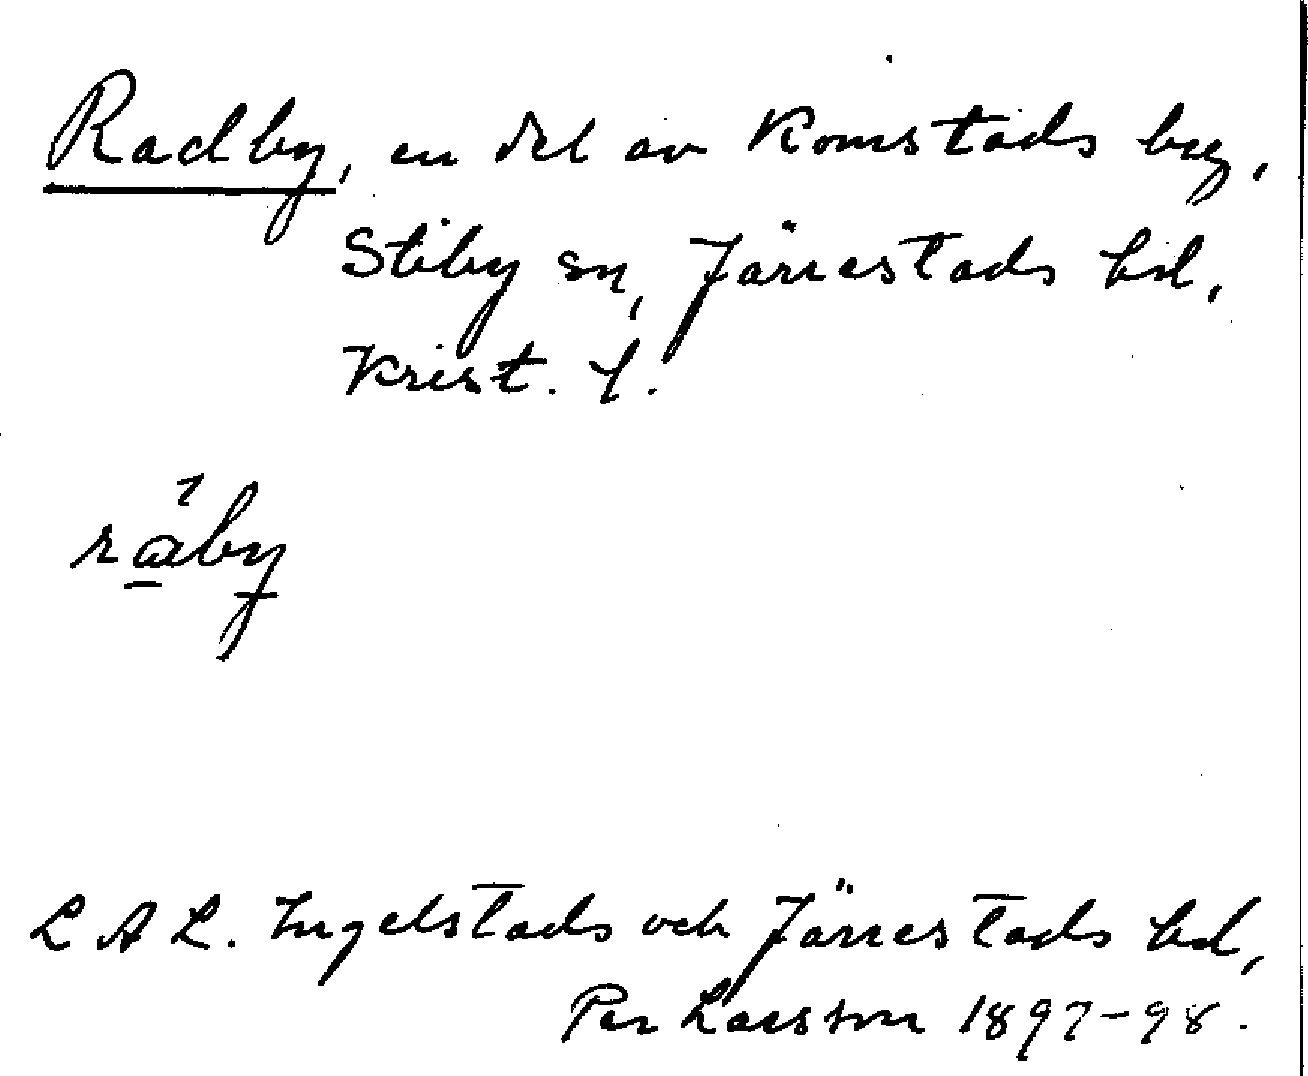 Radby, en del av Komstads by,
Stiby sn, Järrestads hd,
Krist. l.
råby
L A L. Ingelstads och Järrestads hd,
Per Larsson 1897-98.